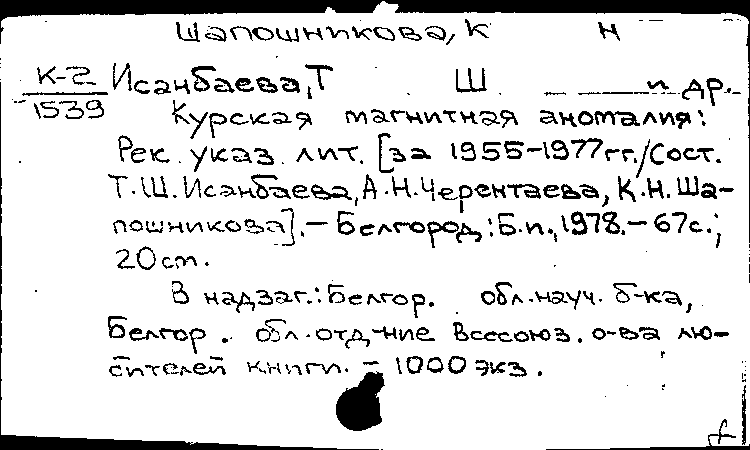 Шапошникова, К Н
К-2 Исанбаева, Т Ш и др.
1539
Курская магнитная аномалия:
Рек. указ. лит. [за 1955-1977 гг./Сост.
Т.Ш. Исанбаева, А.Н. Черентаева, К.Н. Ша-
пошникова]. — Белгород: Б.и., 1978. — 67с.;
20 cm.
В надзаг.: Белгор. обл. науч. б-ка,
Белгор. обл. отд-ние Всесоюз. о-ва лю-
бителей книги. — 1000 экз.